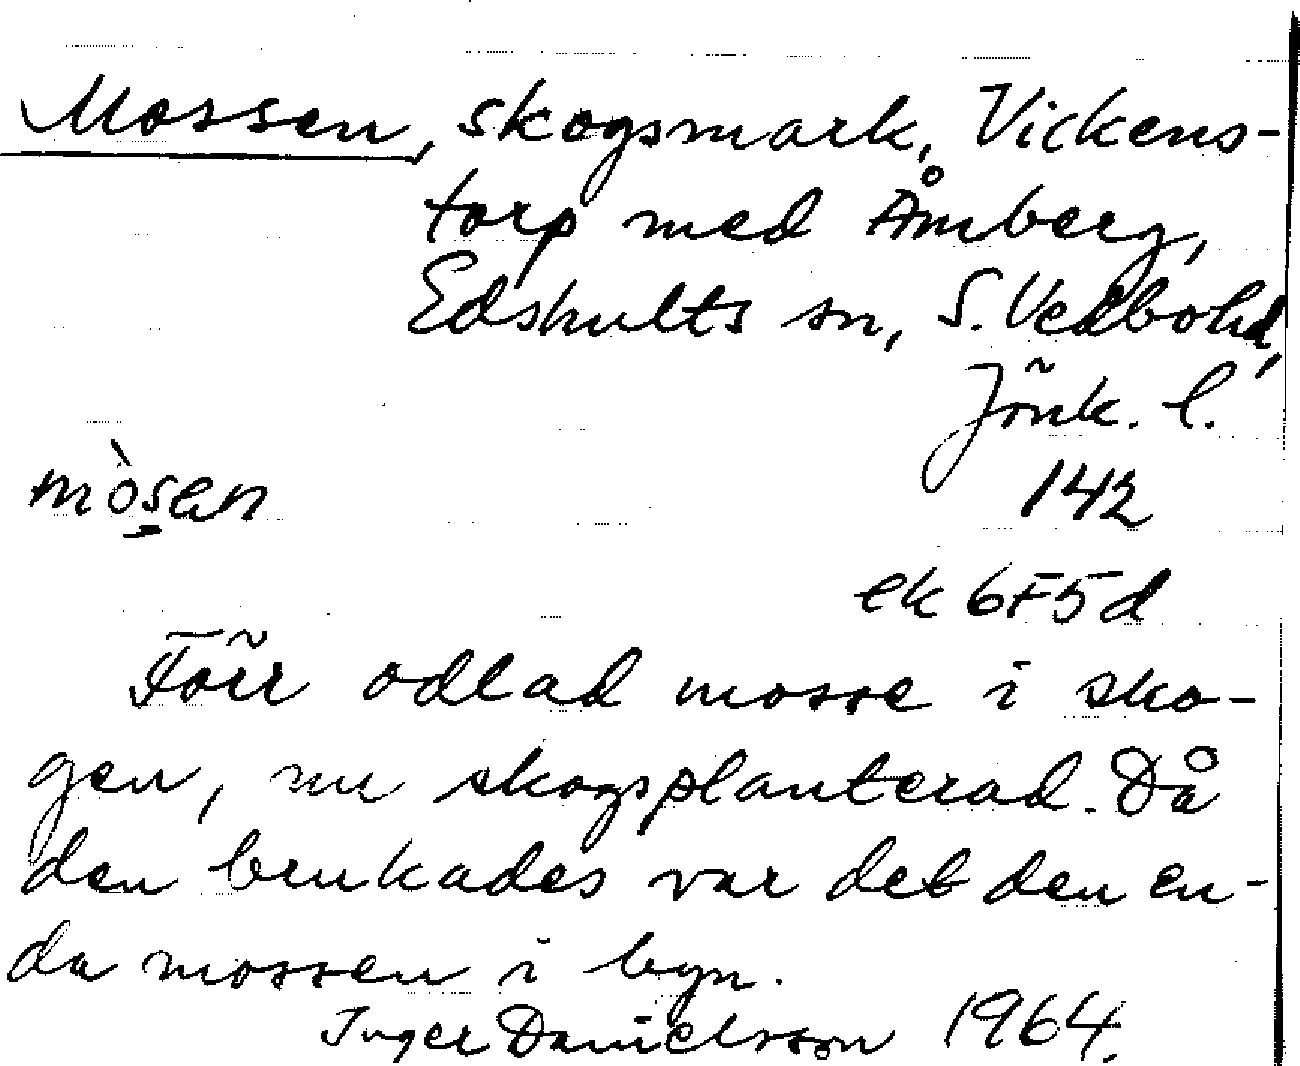 Mossen, skogsmark, Vickens-
torp med Åmberg,
Edshults sn, S. Vedbohd,
Jönk. l.
mòsen
142
ek 6F5d
Förr odlad mosse i sko-
gen, nu skogsplanterad. Då
den brukades var det den en-
da mossen i byn.
Inger Danielsson 1964.